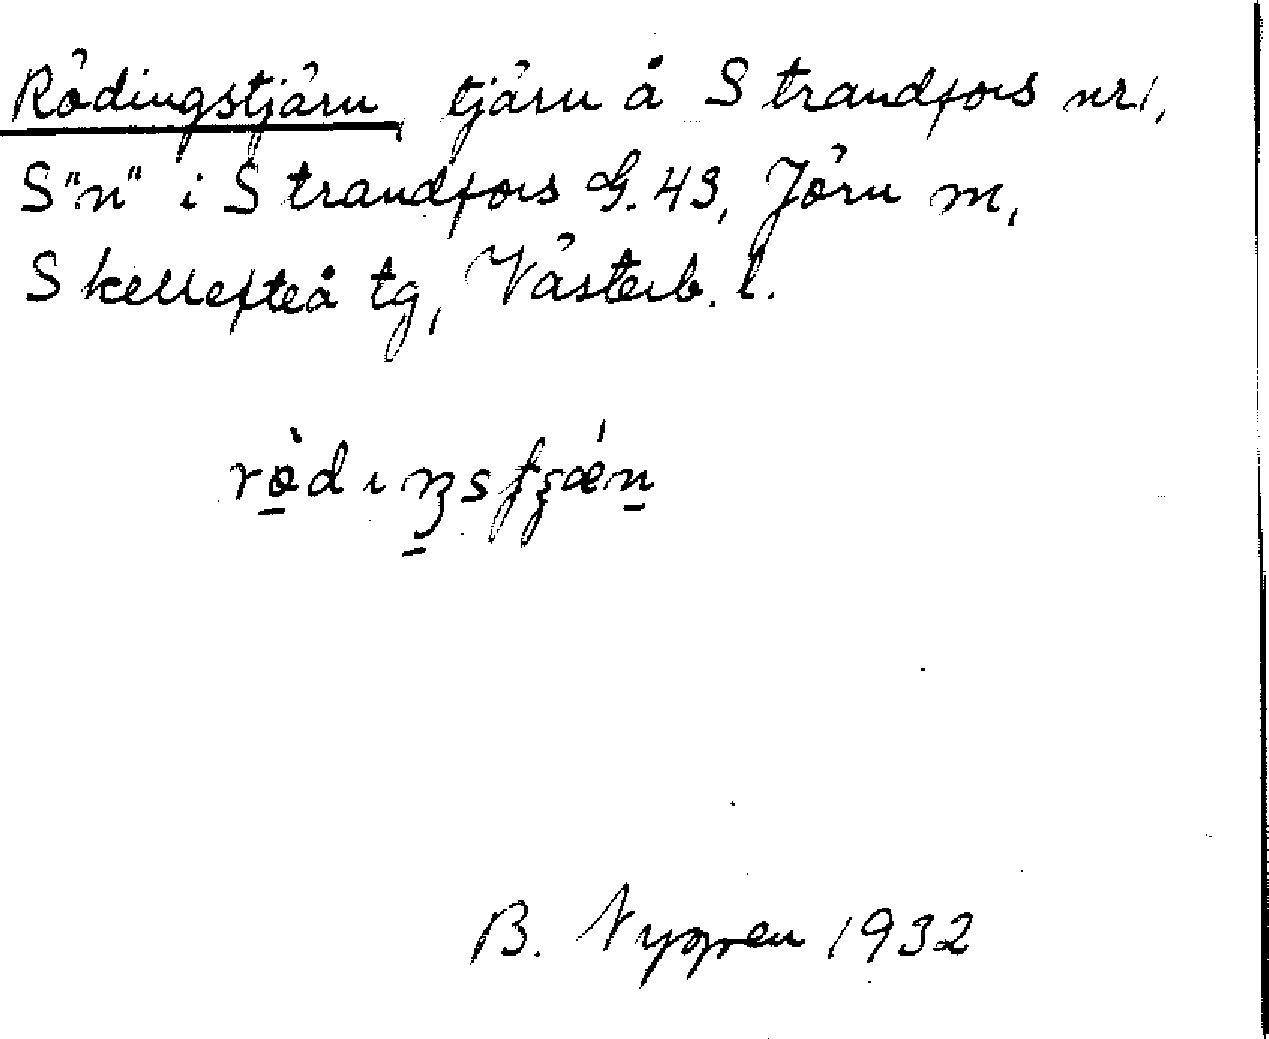 Rödingstjärn, tjärn å Strandfors nr 1,
S"n" i Strandfors G. 43, Jörn m,
Skellefteå tg, Västerb. l.
B. Nygren 1932